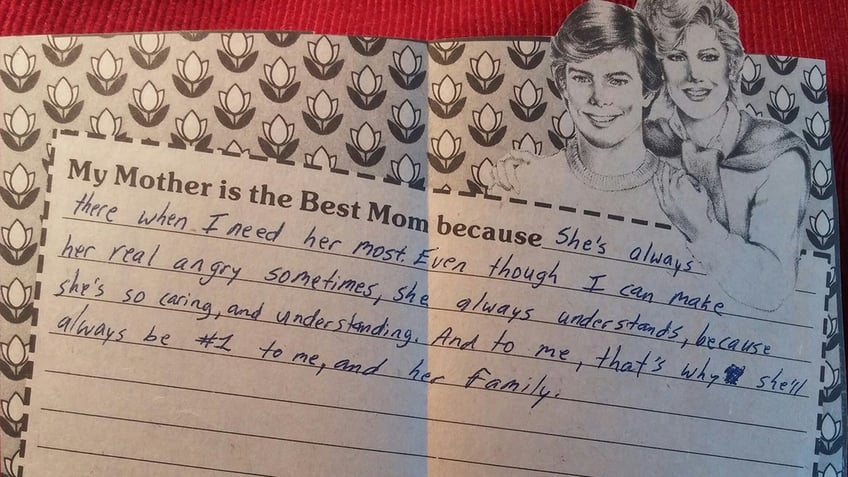 My Mother is the Best Mom because She's always
there when I need her most. Even though I can make
her real angry sometimes, she always understands, because
she's so caring, and understanding. And to me, that's why she'll
always be #1 to me, and her family.